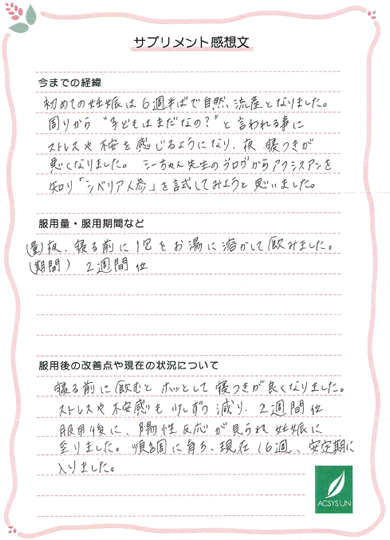 サプリメント感想文
今までの経緯
初めての妊娠は6週半ばで自然流産となりました。
周りから"子どもはまだなの?"と言われる事に
ストレスや不安を感じるようになり、夜 寝つきが
悪くなりました。シーちゃん先生のブログからアクシスアンを
知り「シベリア人参」を試してみようと思いました。
服用量・服用期間など
(量)夜、寝る前に1包をお湯に溶かして飲みました。
(期間) 2週間位
服用後の改善点や現在の状況について
寝る前に飲むとホッとして寝つきが良くなりました。
ストレスや不安感も少しずつ減り、2週間位
服用後に、陽性反応が見られ妊娠に
至りました。順調に育ち、現在16週、安定期に
入りました。
ACSYS UN